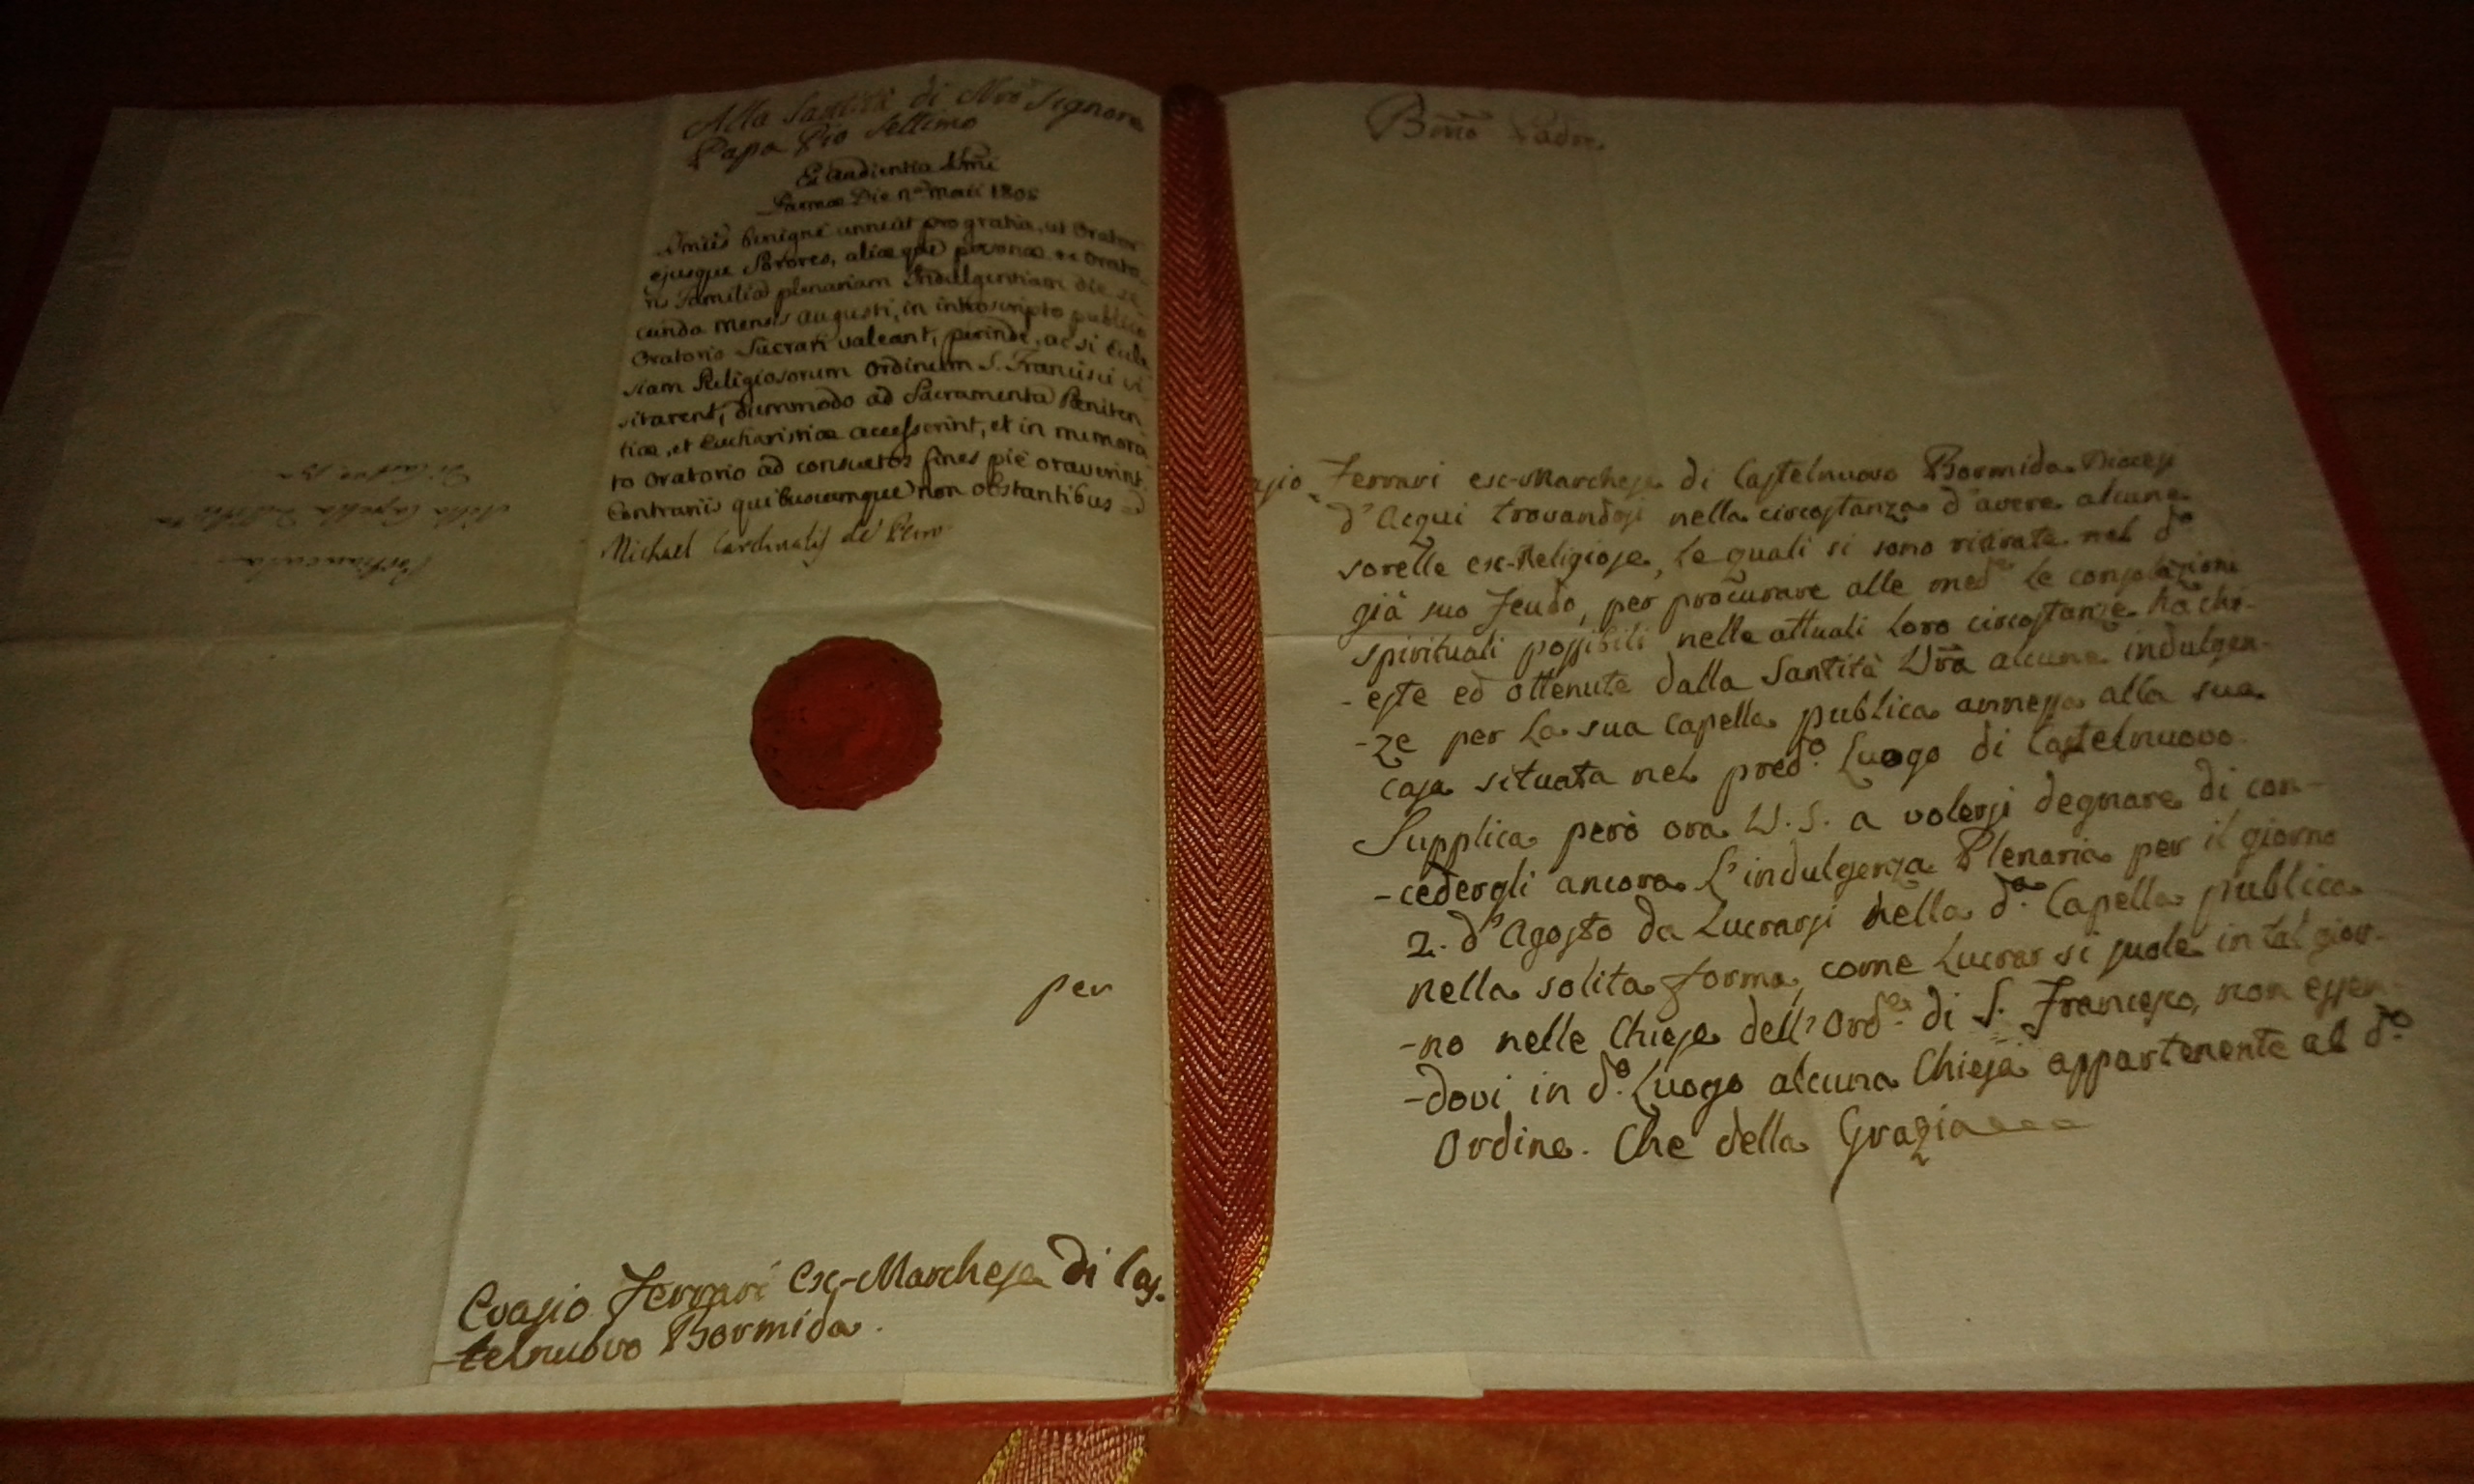 Alla Santità di Nro Signore
Papa Pio Settimo
Ex Audientia SSmi
Parmae Die maii 1805
SSmus benigne annuit pro gratia, ut Orator
ejusque Sorores, aliaeque personae ex Orato
ris Familia plenariam Indulgentiam die se
cunda mensis Augusti, in introscripto publico
Oratorio Lucrari valeant, perinde, ac si Eccle
siam Religiosorum Ordinum S. Francisci vi
sitarent, dummodo ad Sacramenta Poeniten
tiae, et Eucharistiae accesserint, et in memora
to Oratorio ad consuetos fines piè oraverint.
Contrariis quibuscumque non obstantibus
Michael Cardinalis de
per
Evasio Ferrari Ex-Marchese Di Cas.
-telnuovo Bormida.
Portiuncula
Nella Capella
Bmo Padre
asio Ferrari ex-Marchese di Castelnuovo Bormida Diocesi
d'Acqui trovandosi nella circostanza d'avere alcune
sorelle ex-Religiose, le quali si sono ritirate nel do
già suo Feudo, per procurare alle mede le consolazioni
spirituali possibili nelle attuali loro circostanze ha chi-
-este ed ottenute dalla Santità Vra alcune indulgen-
-ze per la sua Capella publica annessa alla sua
casa situata nel predo. Luogo di Castelnuovo
Supplica però ora V. S. a volersi degnare di con-
-cedergli ancora l'indulgenza Plenaria per il giorno
2. d'Agosto da Lucrarsi nella da. Capella publica
nella solita forma, come Lucrar si suole in tal gior-
-no nelle Chiese dell'Orde. di S. Francesco, non essen-
-dovi in do. Luogo alcuna Chiesa appartenente al do.
Ordine. Che della Grazia